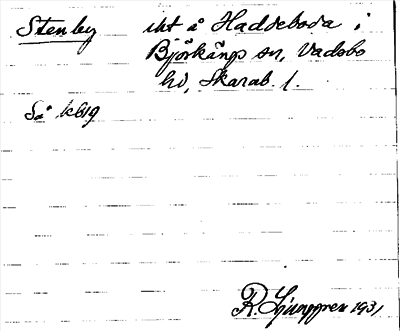 Stenby iht å Haddeboda i
Björkäng sn, Vadsbo
hd, Skarab. l.
Så kblg
R. Ljunggren 1931